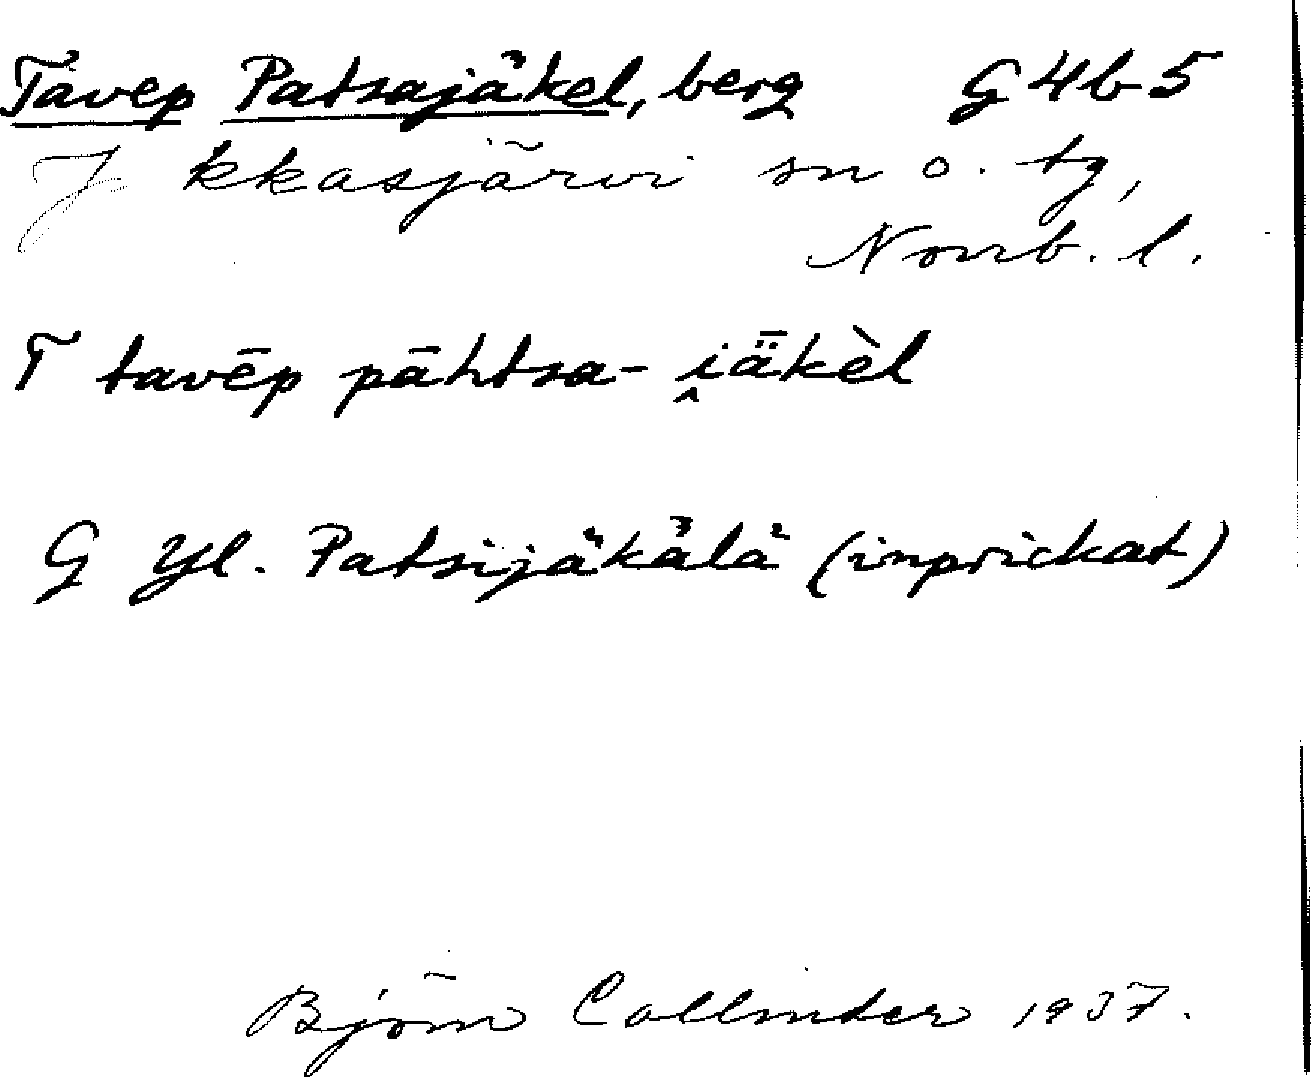 Tavep Patsajäkel, berg G4b5
Jukkasjärvi sn o. tg,
Norrb. l.
T tavēp pāhtsa- i̭ǟkèl
G Yl. Patsijäkälä (inprickat)
Björn Collinder 1937.